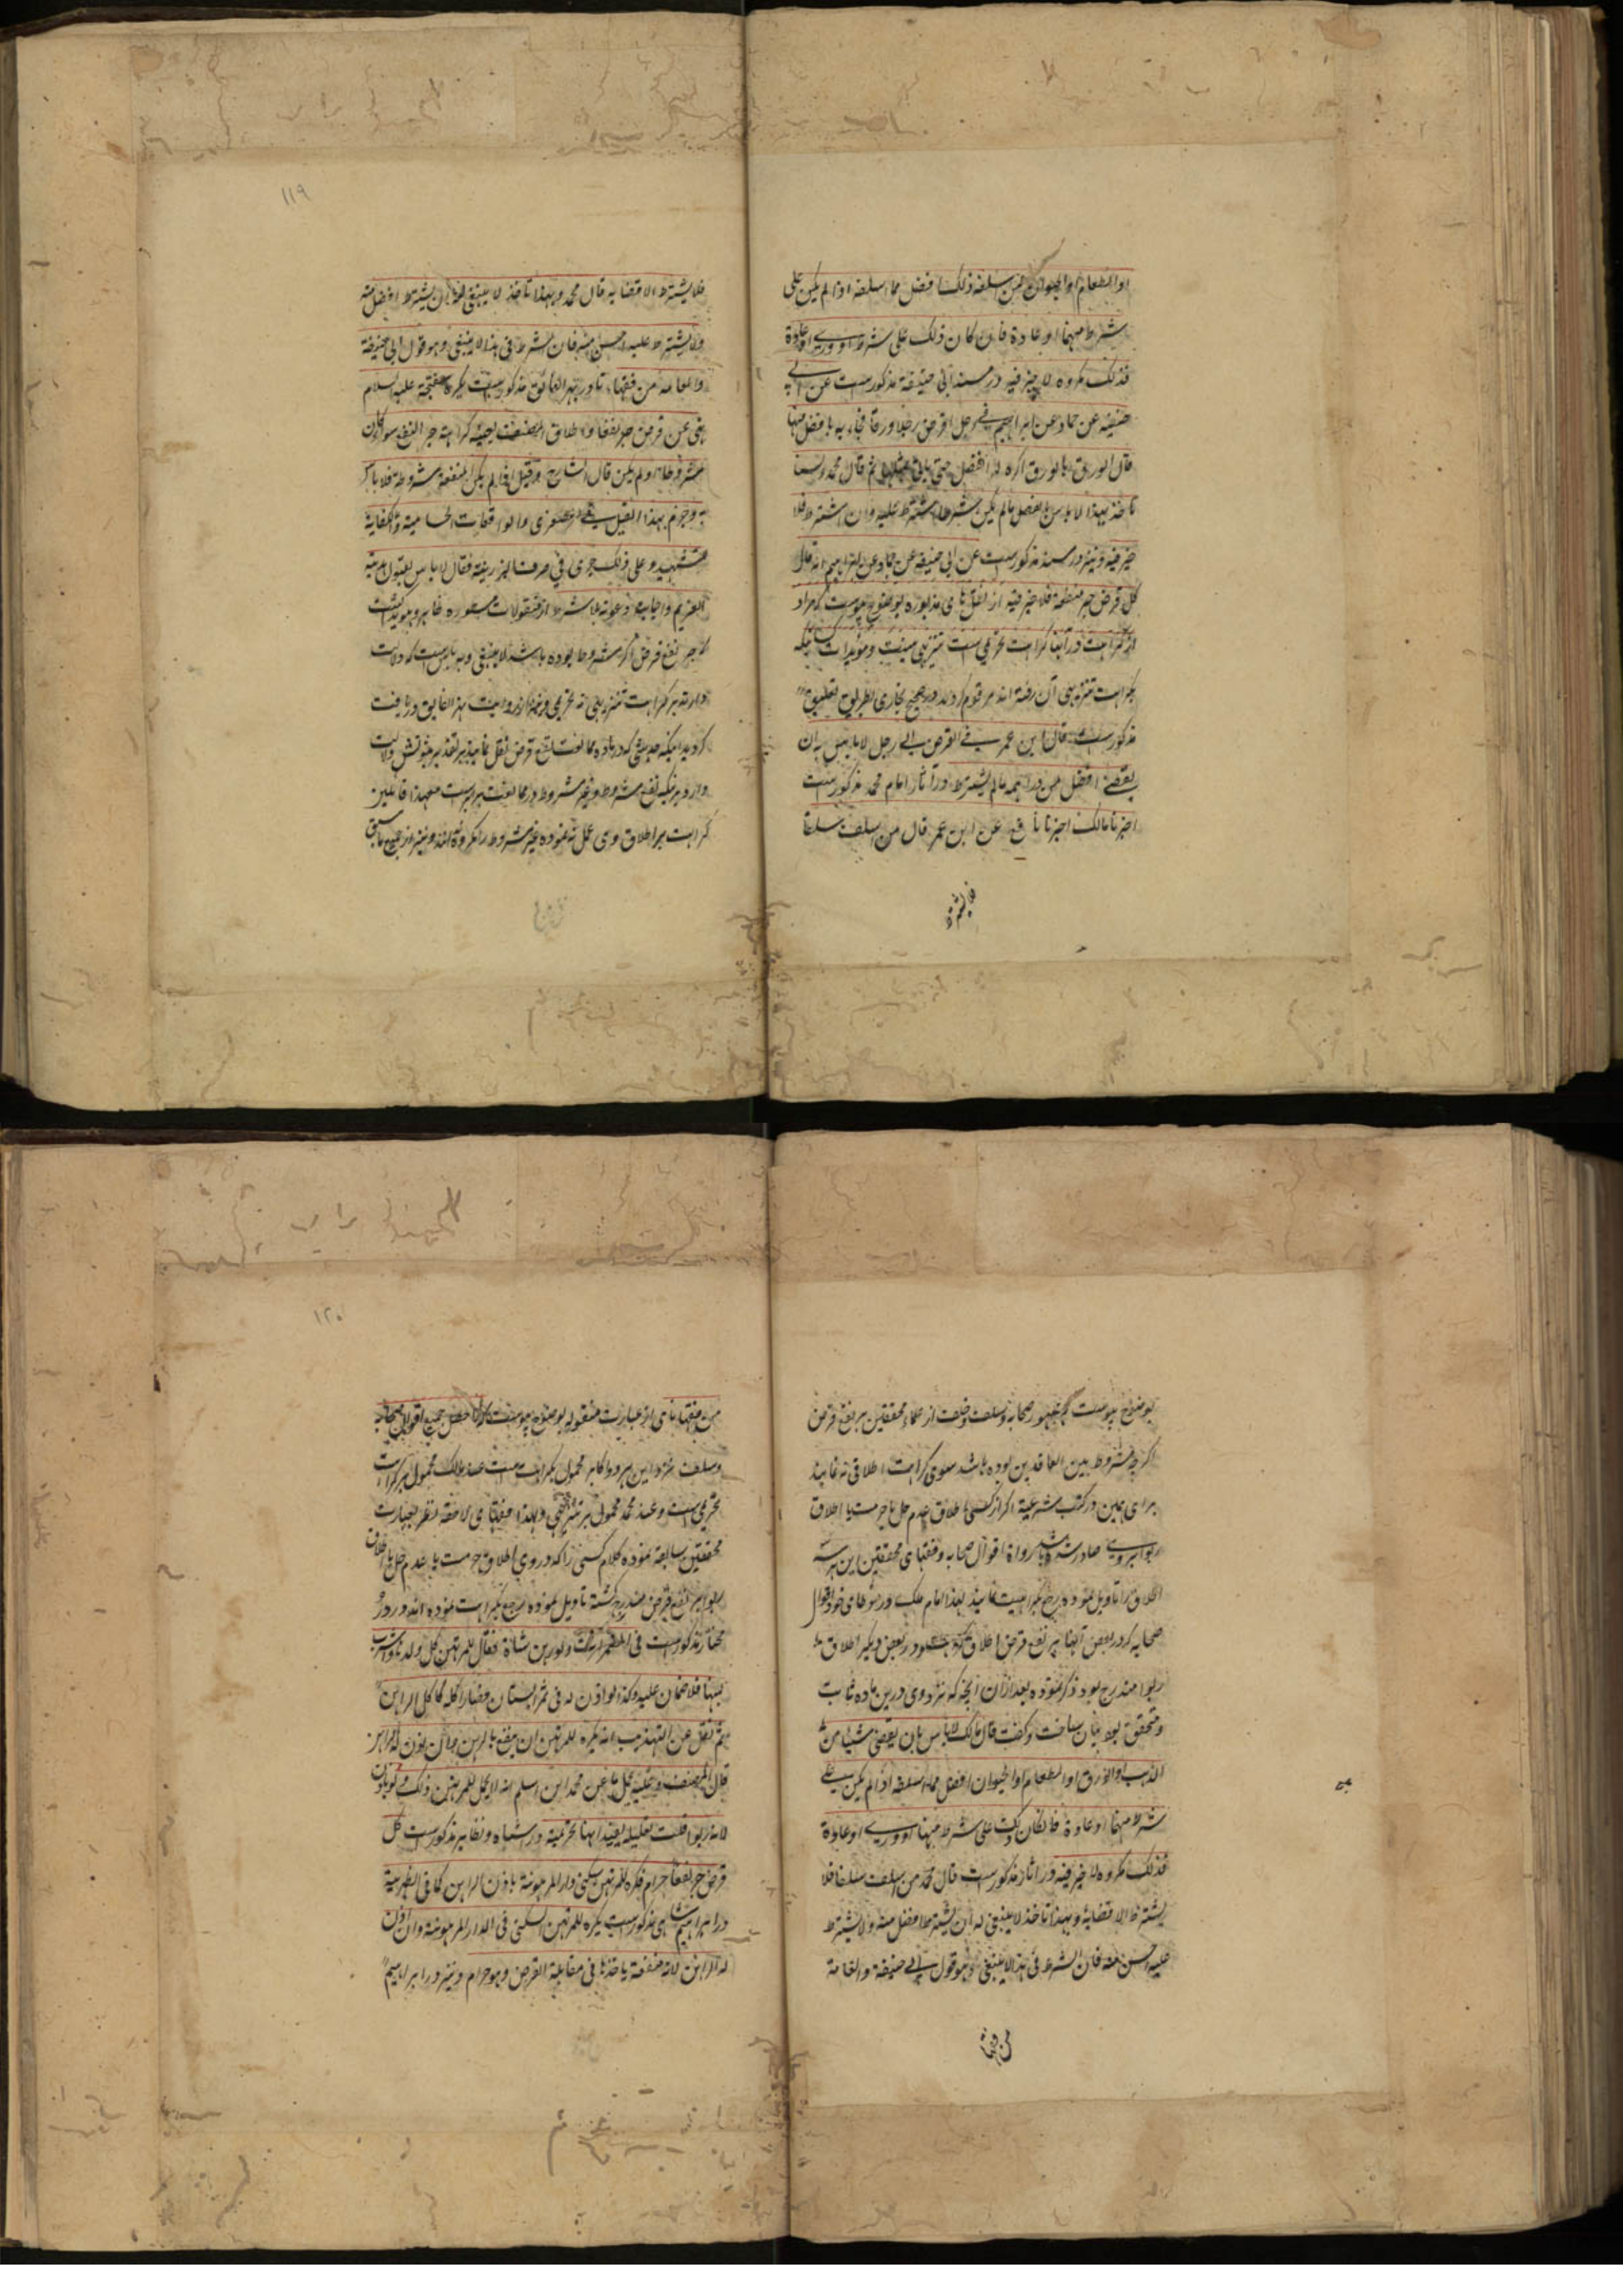 اوالطعام اوالحیوان ممن سلفه ذلک افضل مما اسلفه اذا لم یکن علی
شرط منهما او عادة فان کان ذلک علی شرط او وری او عادة
فذلک مکروه لا خیر فیه در مسند ابی حنیفة مذکورست عن ابی
حنیفه عن حماد عن ابراهیم فی رجل اقرض رجلا ورقا فجاءه بافضل منها
قال الورق بالورق اکره له الفضل حتی یاتی بمثلها ثم قال محمد ولسنا
ناخذ بهذا لا باس بالفضل مالم یکن شرطا اشترط علیه وان اشترط فلا
خیر فیه ونیز در مسند مذکورست عن ابی حنیفة عن حماد عن ابراهیم انه قال
کل قرض جر منفعة فلا خیر فیه از نقل های مذبوره بوضوح پیوست که مراد
از کراهت در آنها کراهت تحریمی ست تنزیهی نیست ومؤیدات
بکراهت تنزیهی آن رفته اند مرقوم گردید در صحیح بخاری بطریق تعلیق
مذکورست قال ابن عمر فی القرض الی رجل لا باس بان
یعطی افضل من دراهمه مالم یشترط در آثار امام محمد مذکورست
اخبرنا مالک اخبرنا نافع عن ابن عمر قال من اسلف سلفا
فلا یشترط
۱۱۹
فلا یشترط الا قضاءه قال محمد وبهذا ناخذ لا ینبغی له ان یشترط افضل منه
ولا یشترط علیه احسن منه فان الشرط فی هذا لا ینبغی وهو قول ابی حنیفة
والعامه من فقهائنا ودر نهر الفائق مذکورست یکره السفتجة علیه السلام
نهی عن قرض جر نفعا واطلاق المصنف یفید کراهة جر النفع سواء کان
مشروطا او لم یکن قال الشارح وقیل اذا لم یکن المنفعة مشروطة فلا باس
به وجزم بهذا القیل فی الصغری والواقعات الحسامیة والکفایة
للشهید وعلی ذلک جری فی صرف البزازیة فقال لا باس بقبول هدیة
الغریم واجابة دعوته بلا شرط از منقولات مسطوره ظاهر وهویداست
که جر نفع قرض اگر مشروط بوده باشد لا ینبغی وبه باس ست که دلالت
دارند بر کراهت تنزیهی نه تحریمی ونیز از روایت نهر الفایق دریافت
گردید اینکه حدیثی که درباره ممانعت نفع قرض نقل نمایند بر تقدیر ثبوتش دلالت
دارد بر اینکه نفع مشروط وغیر مشروط در ممانعت برابرست معهذا قائلین
کراهت بر اطلاق وی عمل ننموده غیر مشروط را مکروه نگفته اند ونیز از جمیع ماسبق
بوضوح پیوست که جمهور صحابه وسلف وخلف از علماء محققین بر نفع قرض
اگرچه مشروط بین العاقدین بوده باشد سوی کراهت اطلاقی نه نمایند
برای همین در کتب شرعیة اگر از کسی اطلاق عدم حل یا حرمت یا اطلاق
ربوا بروی صادر شده باشد رواة اقوال صحابه وفقهای محققین این هر سه
اطلاق را تاویل نموده راجع بکراهیت نمایند لهذا امام مالک در مؤطای خود اقوال
صحابه که در بعض آنها بر نفع قرض اطلاق مکروه بود ودر بعض دیگر اطلاق
ربوا مندرج بود ذکر نموده بعد ازان آنچه که نزد وی درین ماده ثابت
ومتحقق بود بیان ساخت وگفت قال مالک لا باس بان یقضی شیئا من
الذهب والورق اوالطعام اوالحیوان افضل مما اسلفه اذا لم یکن علی
شرط منهما او عادة فان کان ذلک علی شرط منهما او وری او عادة
فذلک مکروه لا خیر فیه ودر آثار مذکورست قال محمد من اسلف سلفا فلا
یشترط الا قضاءه وبهذا ناخذ لا ینبغی له ان یشترط افضل منه ولا یشترط
علیه احسن منه فان الشرط فی هذا لا ینبغی وهو قول ابی حنیفة والعامة
من فقهائنا
۱۲۰
من فقهائنا می از عبارت منقوله بوضوح پیوست که ماحصل جمیع اقوال صحابه
وسلف نزد این هر دو اکابر محمول بکراهت ست عند مالک محمول بر کراهت
تحریمی ست وعند محمد محمول بر تنزیهی ولهذا فقهای لاحقه نظر بعبارت
محققین سابقه نموده کلام کسی را که در وی اطلاق حرمت یا عدم حل یا اطلاق
ربوا بر نفع قرض مندرج گشته تاویل نموده راجع بکراهت نموده اند ودر در
مختار مذکورست فی المضمرات ولو رهن شاة فقال للمرتهن کل ولدها واشرب
لبنها فلا ضمان علیه وکذا لو اذن له فی ثمر البستان فصار اکله کاکل الراهن
ثم نقل عن التهذیب انه یکره للمرتهن ان ینتفع بالرهن وان اذن له الراهن
قال المصنف وعلیه یحمل ما عن محمد ابن اسلم انه لا یحل للمرتهن ذلک ولو بالاذن
لانه ربوا قلت تعلیله یفید انها تحریمیة ودر اشباه ونظایر مذکورست کل
قرض جر نفعا حرام فکره للمرتهن سکنی دار المرهونة باذن الراهن کما فی الظهیریة
ودر ابراهیم شاهی مذکورست یکره للمرتهن السکنی فی الدار المرهونة وان اذن
له الراهن لانه منفعة یاخذها فی مقابلة القرض وهو حرام ونیز در ابراهیم